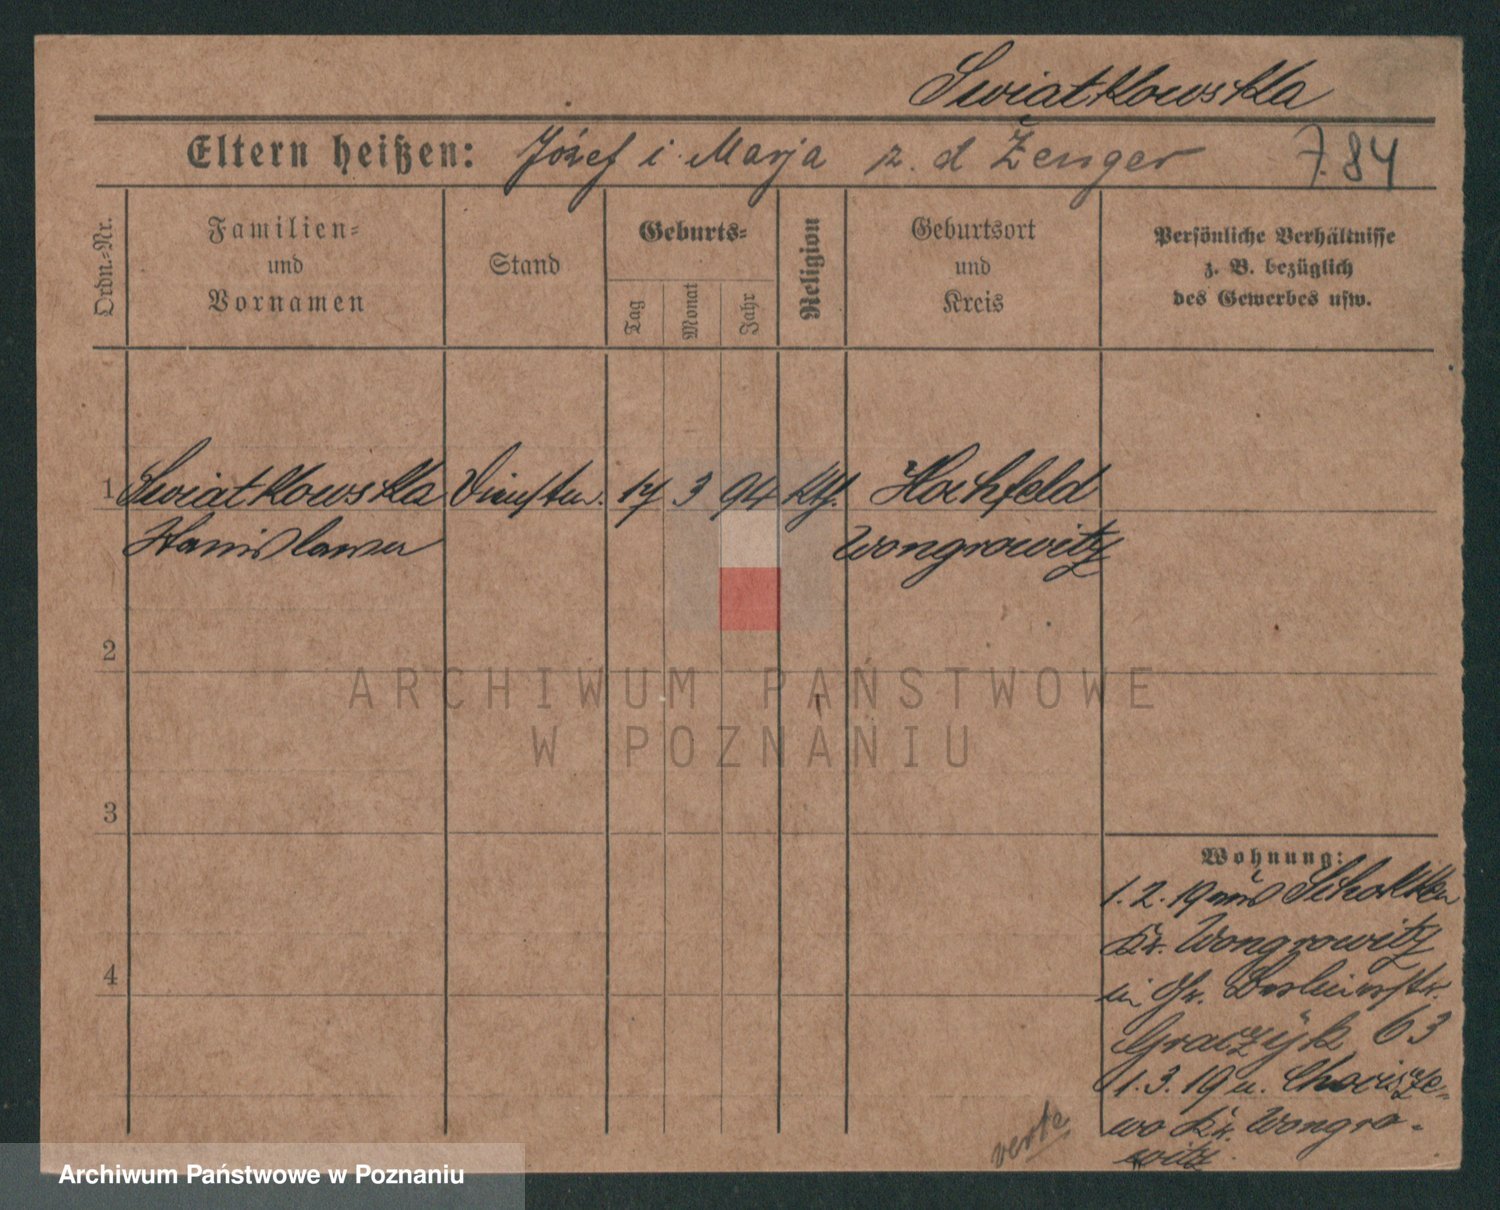 Swiatkowska
Eltern heißen: Józef i Marja z. d Ženger 7.84
Ordn.-Nr.
Familien-
und
Vornamen
Stand
Geburts-
Tag
Monat
Jahr
Religion
Geburtsort
und
Kreis
Persönliche Verhältnisse
z. B. bezüglich
des Gewerbes usw.
1 Swiatkowska 17 3 94 Kth. Hochfeld
Stanislawa Wongrowitz
2
3
4
ARCHIWUM PAŃSTWOWE
W POZNANIU
Wohnung:
1. 2. 19 aus Schokken
Kr. Wongrowitz
Graczÿk 63
1. 3. 19 n.
wo Kr. Wongro-
witz.
verte
Archiwum Państwowe w Poznaniu